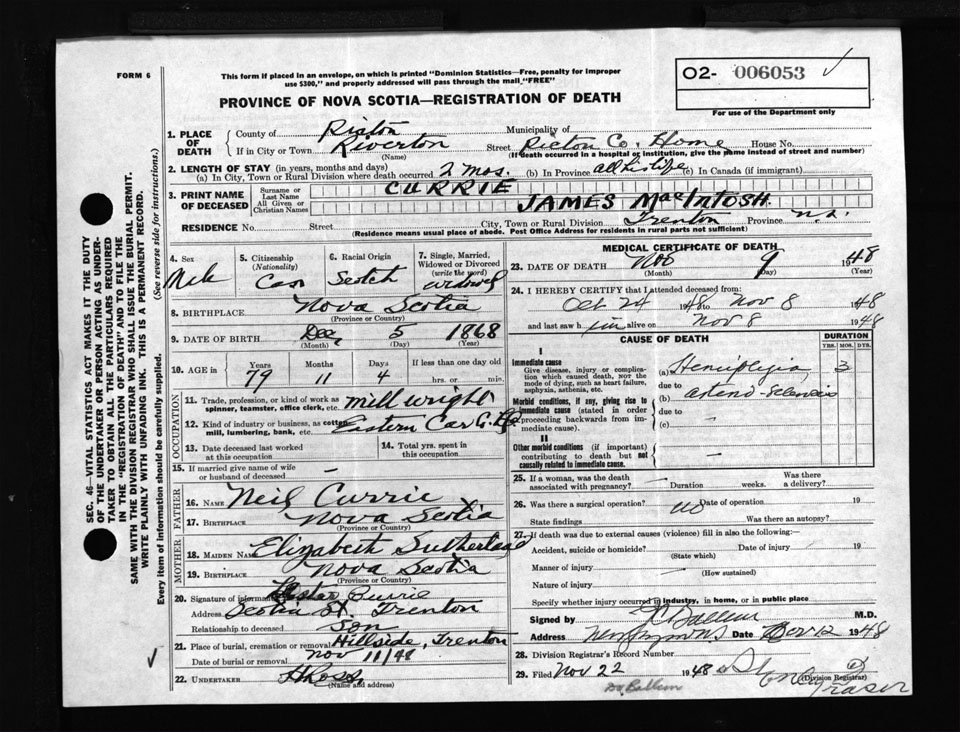 FORM 6
This form if placed in an envelope, on which is printed "Dominion Statistics—Free, penalty for improper
use $300," and properly addressed will pass through the mail "FREE"
O2- 006053 ✓
For use of the Department only
PROVINCE OF NOVA SCOTIA—REGISTRATION OF DEATH
1. PLACE OF DEATH
County of Pictou Municipality of
If in City or Town Riverton Street Pictou Co. Home House No.
(Name) (If death occurred in a hospital or institution, give the name instead of street and number)
2. LENGTH OF STAY (in years, months and days)
(a) In City, Town or Rural Division where death occurred 2 mos. (b) In Province all his life (c) In Canada (if immigrant)
3. PRINT NAME OF DECEASED
Surname or Last Name CURRIE
All Given or Christian Names JAMES MacINTOSH.
RESIDENCE No. Street City, Town or Rural Division Trenton Province N.S.
(Residence means usual place of abode. Post Office Address for residents in rural parts not sufficient)
4. Sex Male
5. Citizenship (Nationality) Can
6. Racial Origin Scotch
7. Single, Married, Widowed or Divorced (write the word) widowed
8. BIRTHPLACE Nova Scotia
(Province or Country)
9. DATE OF BIRTH Dec 5 1868
(Month) (Day) (Year)
10. AGE in Years 79 Months 11 Days 4 If less than one day old hrs. or min.
OCCUPATION
11. Trade, profession, or kind of work as spinner, teamster, office clerk, etc. Mill wright
12. Kind of industry or business, as cotton mill, lumbering, bank, etc. Eastern Car
13. Date deceased last worked at this occupation
14. Total yrs. spent in this occupation
15. If married give name of wife or husband of deceased —
FATHER
16. NAME Neil Currie
17. BIRTHPLACE Nova Scotia
(Province or Country)
MOTHER
18. MAIDEN NAME Elizabeth Sutherland
19. BIRTHPLACE Nova Scotia
(Province or Country)
20. Signature of informant Currie
Address Scotia St. Trenton
Relationship to deceased Son
21. Place of burial, cremation or removal Hillside, Trenton
Date of burial or removal Nov 11/48
22. UNDERTAKER H Ross
(Name and address)
MEDICAL CERTIFICATE OF DEATH
23. DATE OF DEATH Nov 9 1948
(Month) (Day) (Year)
24. I HEREBY CERTIFY that I attended deceased from
Oct 24 1948 to Nov 8 1948
and last saw him alive on Nov 8 1948
CAUSE OF DEATH
DURATION
YRS. MOS. DYS.
I
Immediate cause
Give disease, injury or complication which caused death, not the mode of dying, such as heart failure, asphyxia, asthenia, etc.
(a) Hemiplegia 3
due to
Morbid conditions, if any, giving rise to immediate cause (stated in order proceeding backwards from immediate cause).
(b) Arterio-Sclerosis
due to
(c)
II
Other morbid conditions (if important) contributing to death but not causally related to immediate cause.
25. If a woman, was the death associated with pregnancy? Duration weeks. Was there a delivery?
26. Was there a surgical operation? no Date of operation 19
State findings Was there an autopsy?
27. If death was due to external causes (violence) fill in also the following:—
Accident, suicide or homicide? Date of injury 19
(State which)
Manner of injury
(How sustained)
Nature of injury
Specify whether injury occurred in industry, in home, or in public place
Signed by M.D.
Address Date Nov 12 1948
28. Division Registrar's Record Number
29. Filed Nov 22 1948 Fraser
(Division Registrar)
SEC. 46—VITAL STATISTICS ACT MAKES IT THE DUTY
OF THE UNDERTAKER OR PERSON ACTING AS UNDER-
TAKER TO OBTAIN ALL THE PARTICULARS REQUIRED
IN THE "REGISTRATION OF DEATH" AND TO FILE THE
SAME WITH THE DIVISION REGISTRAR WHO SHALL ISSUE THE BURIAL PERMIT.
WRITE PLAINLY WITH UNFADING INK. THIS IS A PERMANENT RECORD.
Every item of information should be carefully supplied. (See reverse side for instructions.)